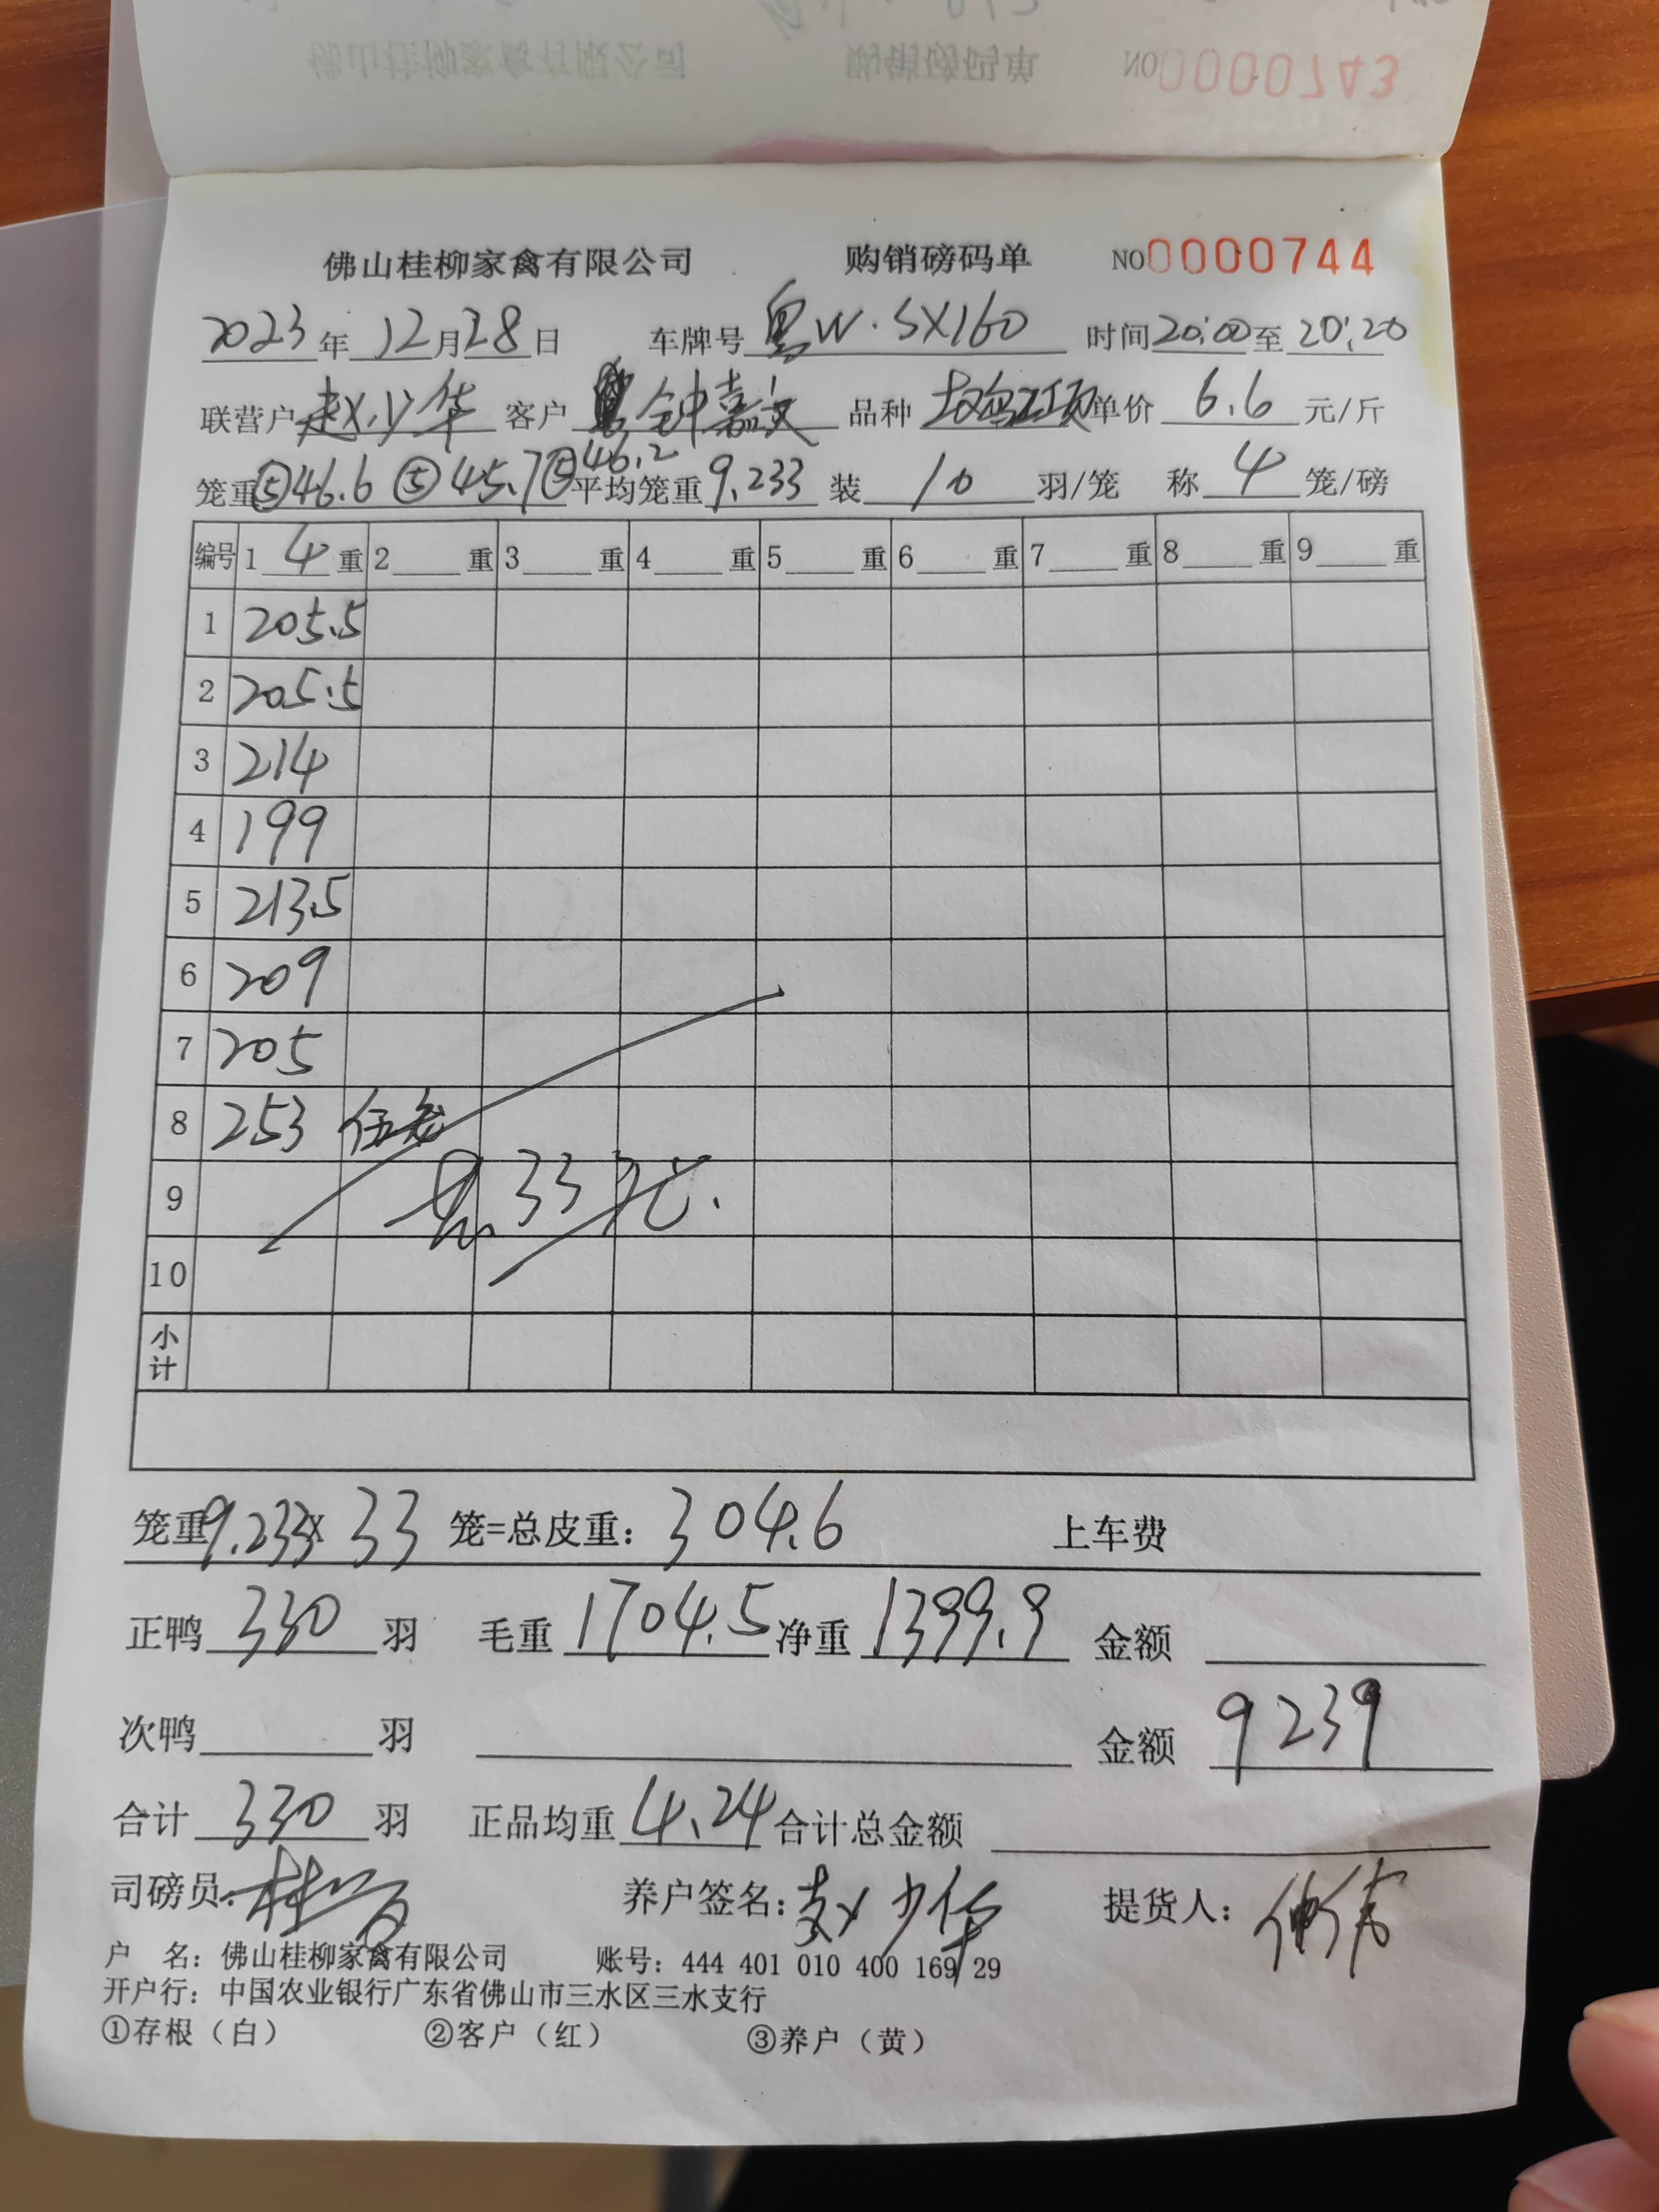 佛山桂柳家禽有限公司 购销磅码单 NO0000743
佛山桂柳家禽有限公司 购销磅码单 NO0000744
2023年12月28日 车牌号粤W·SX160 时间20:00至20:20
联营户赵少华 客户钟嘉文 品种 单价6.6元/斤
笼重⑤46.6 ⑤45.7 ⑤46.2 平均笼重9.233装10羽/笼 称4笼/磅
编号 1 4 重 2 重 3 重 4 重 5 重 6 重 7 重 8 重 9 重
1 205.5
2 205.5
3 214
4 199
5 213.5
6 209
7 205
8 253 伍笼
9 共33笼.
10
小计
笼重9.233×33笼=总皮重：304.6 上车费
正鸭330羽 毛重1704.5净重1399.9 金额
次鸭 羽 金额9239
合计330羽 正品均重4.24合计总金额
司磅员： 养户签名：赵少华 提货人：
户 名：佛山桂柳家禽有限公司 账号：444 401 010 400 169 29
开户行：中国农业银行广东省佛山市三水区三水支行
①存根（白） ②客户（红） ③养户（黄）